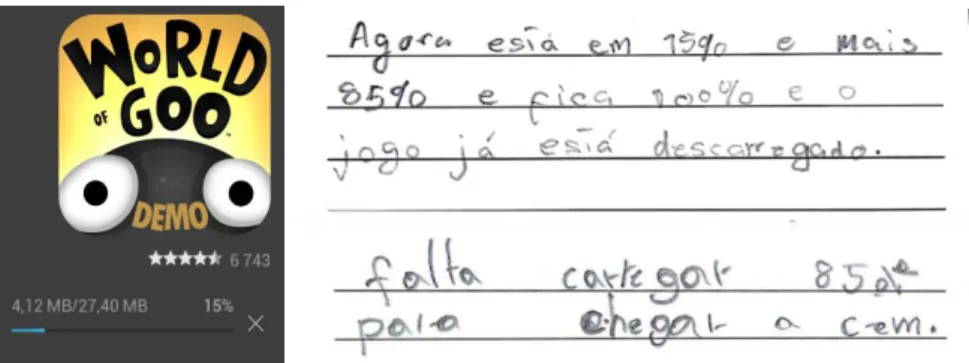 WORLD
OF GOO
DEMO
6 743
4,12 MB/27,40 MB 15%
Agora está em 15% e mais
85% e fica 100% e o
jogo já está descarregado.
falta carregar 85%
para chegar a cem.